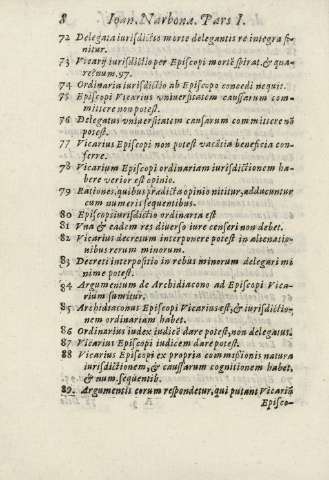 8 Ioan. Narbona. Pars I.
72 Delegata iurisdictio morte delegantis re integra fi-
nitur.
73 Vicarij iurisdictio per Episcopi morte spirat. & qua-
re? num. 97.
74 Ordinaria iurisdictio ab Episcopo concedi nequit.
75 Episcopi Vicarius vniuersitatem caussarum com-
mittere non potest.
76 Delegatus vniuersitatem causarum committere nō
potest.
77 Vicarius Episcopi non potest vacātia beneficia con-
ferre.
78 Vicarium Episcopi ordinariam iurisdictionem ha-
bere verior est opinio.
79 Rationes, quibus prædicta opinio nititur, adducuntur
cum numeris sequentibus.
80 Episcopi iurisdictio ordinaria est
81 Vna & eadem res diuerso iure censeri non debet.
82 Vicarius decretum interponere potest in alienatio-
nibus rerum minorum.
83 Decreti interpositio in rebus minorum delegari mi
nime potest.
84 Argumentum de Archidiacono ad Episcopi Vica-
rium sumitur.
85 Archidiaconus Episcopi Vicarius est, & iurisdictio-
nem ordinariam habet.
86 Ordinarius iudex iudicē dare potest, non delegatus.
87 Vicarius Episcopi iudicem dare potest.
88 Vicarius Episcopi ex propria commissionis natura
iurisdictionem, & caussarum cognitionem habet,
& num. sequentib.
89. Argumentis eorum respondetur, qui putant Vicariū
Episco-